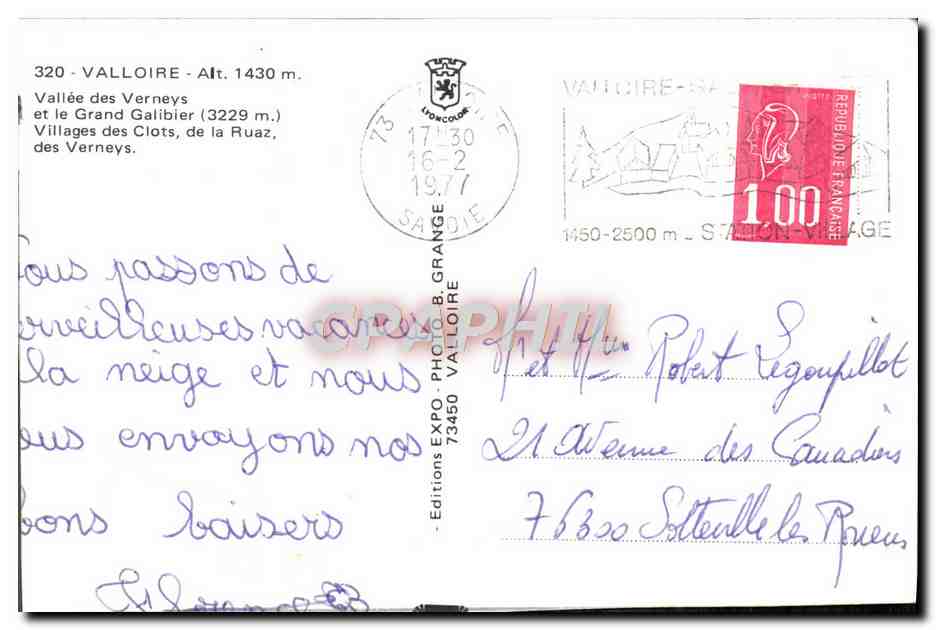 320 - VALLOIRE - Alt. 1430 m.
Vallée des Verneys
et le Grand Galibier (3229 m.)
Villages des Clots, de la Ruaz,
des Verneys.
LYONCOLOR
73
17-30
16-2
1977
SAVOIE
VALLOIRE
1450-2500 m - STATION-VILLAGE
REPUBLIQUE FRANÇAISE
1.00
ous passons de
erveilleuses vacances
la neige et nous
ous envoyons nos
bons baisers
Florence
- Editions EXPO - PHOTO B. GRANGE -
73450 VALLOIRE
CPAPHIL
Mr et Mme Robert Legoupillot
21 Avenue des Canadiens
76300 Sotteville les Rouens